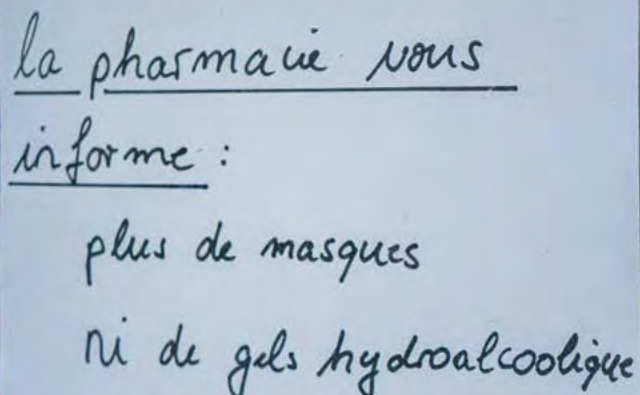 la pharmacie vous
informe :
plus de masques
ni de gels hydroalcoolique